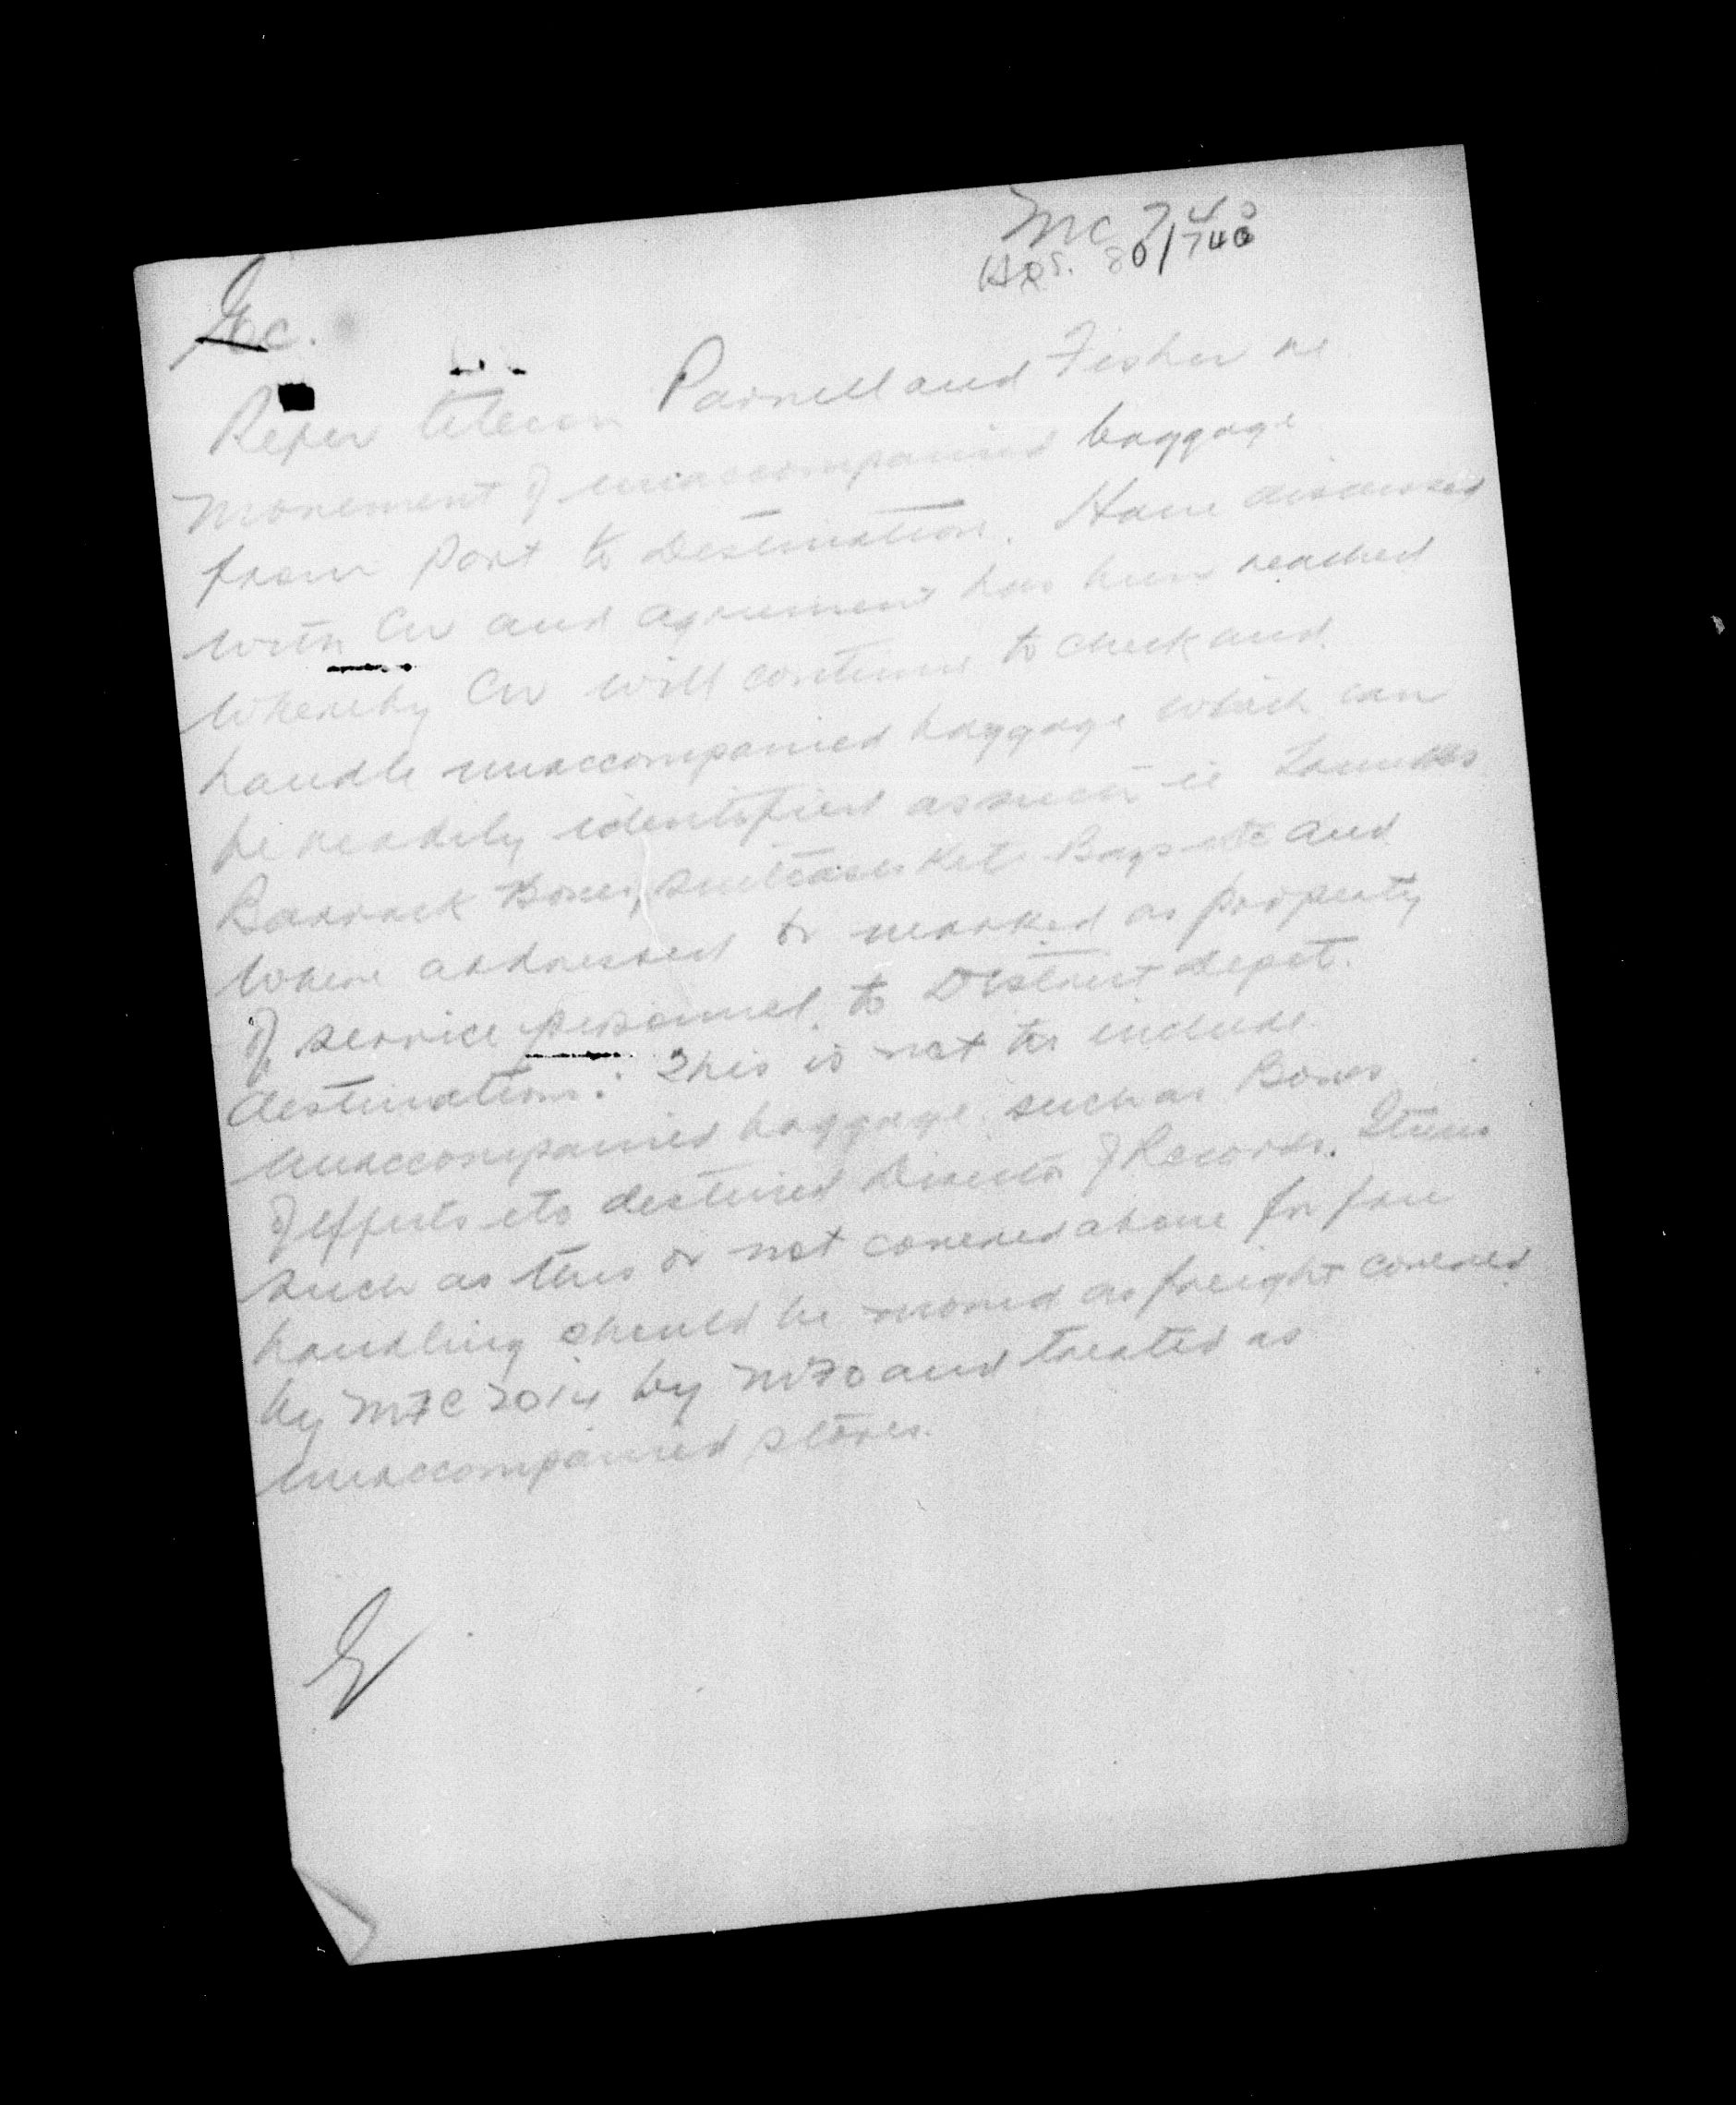 MC 740
HQS. 80/740
Refer telecon Parnell and Fisher re
movement of unaccompanied baggage
from Port to Destination. Have discussed
with CN and agreement has been reached
whereby CN will continue to check and
handle unaccompanied baggage which can
be readily identified as such ie
Barrack Boxes, suitcases Kit Bags etc and
where addressed or marked as property
of service personnel. to District depot.
destination. This is not to include
unaccompanied baggage such as Boxes
of effects etc destined Director of Records. Items
such as this or not covered above for free
handling should be moved as freight covered
by MFC 2014 by MFO and treated as
unaccompanied stores.